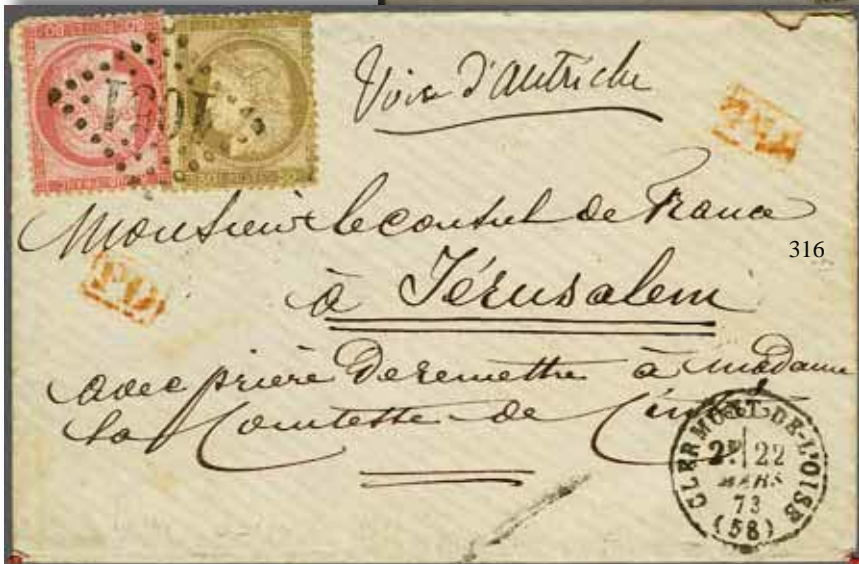 Voie d'autriche
1051
P.D.
Monsieur le consul de France
316
P.D.
à Jérusalem
avec prière de remettre à madame
la Comtesse de
CLERMONT-DE-L'OISE
2E 22
MARS
73
(58)